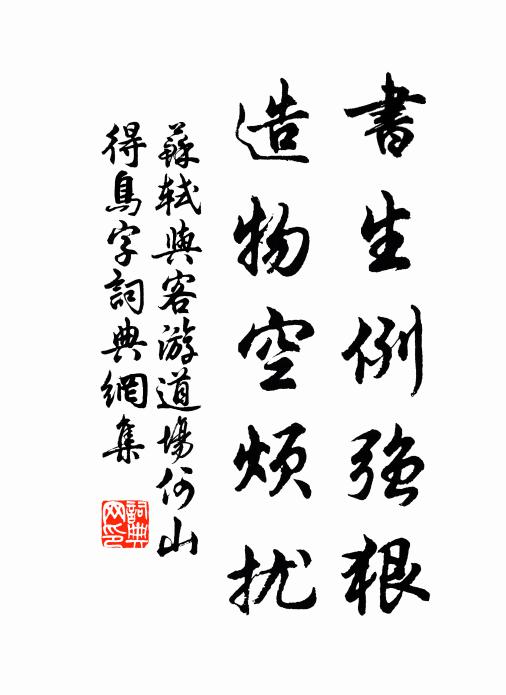 書生例強狠
造物空煩扰
蘇軾與客游道場何山
得鳥字詞典網集
詞典
网印